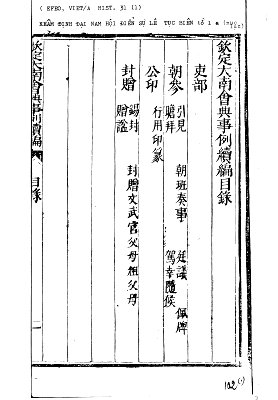 ( EFEO. VIET/A HIST. 31 (1)
KHÂM ĐỊNH ĐẠI NAM HỘI ĐIỂN SỰ LỆ TỤC BIÊN tờ 1 a
欽定大南會典事例續編目錄
吏部
朝參 引見 朝班奏事 廷議 佩牌
瞻拜 駕幸隨候
公印 行用印篆
封贈 錫封 封贈文武官父母祖父母
贈諡
欽定大南會典事例續編 目錄 一
102